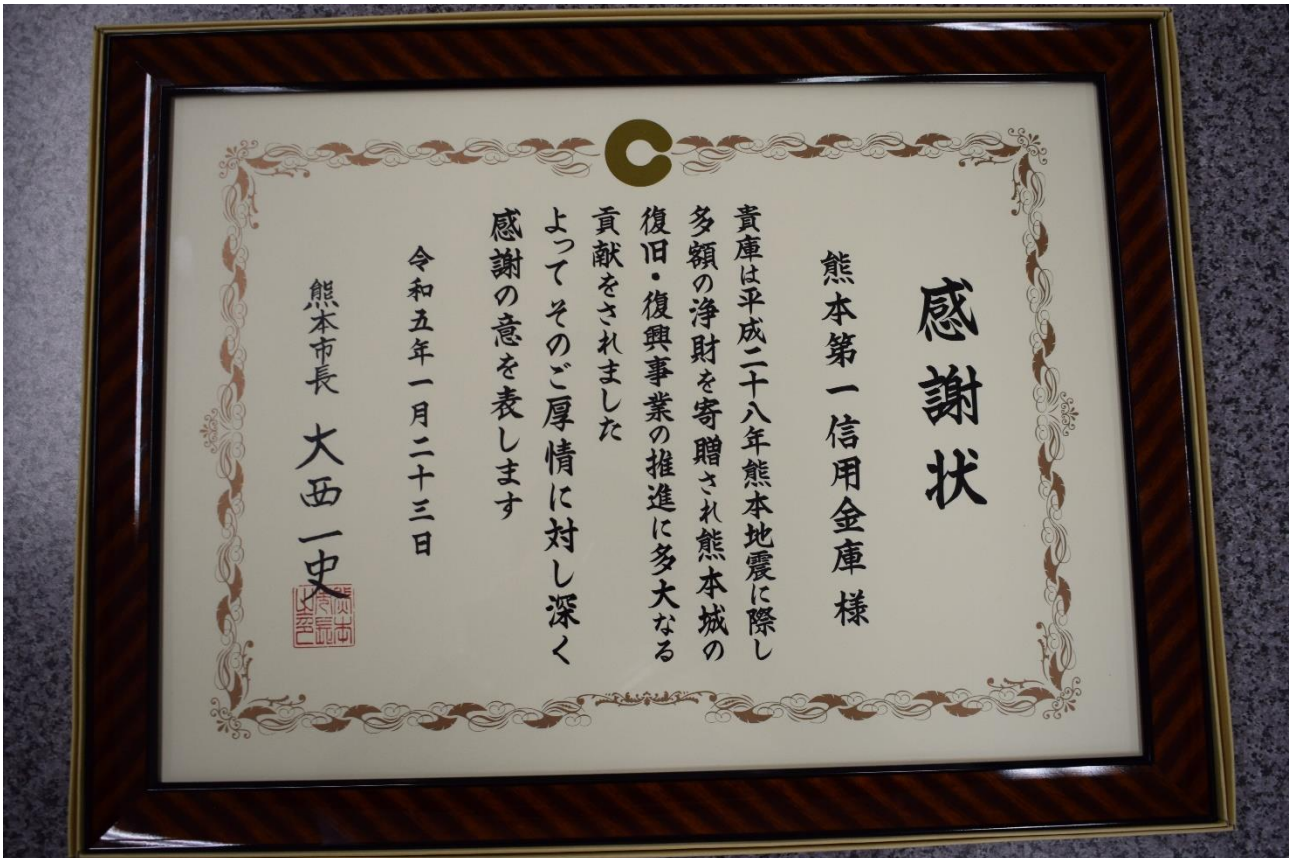 感謝状
熊本第一信用金庫様
貴庫は平成二十八年熊本地震に際し
多額の浄財を寄贈され熊本城の
復旧・復興事業の推進に多大なる
貢献をされました
よってそのご厚情に対し深く
感謝の意を表します
令和五年一月二十三日
熊本市長 大西一史
熊本市長之印